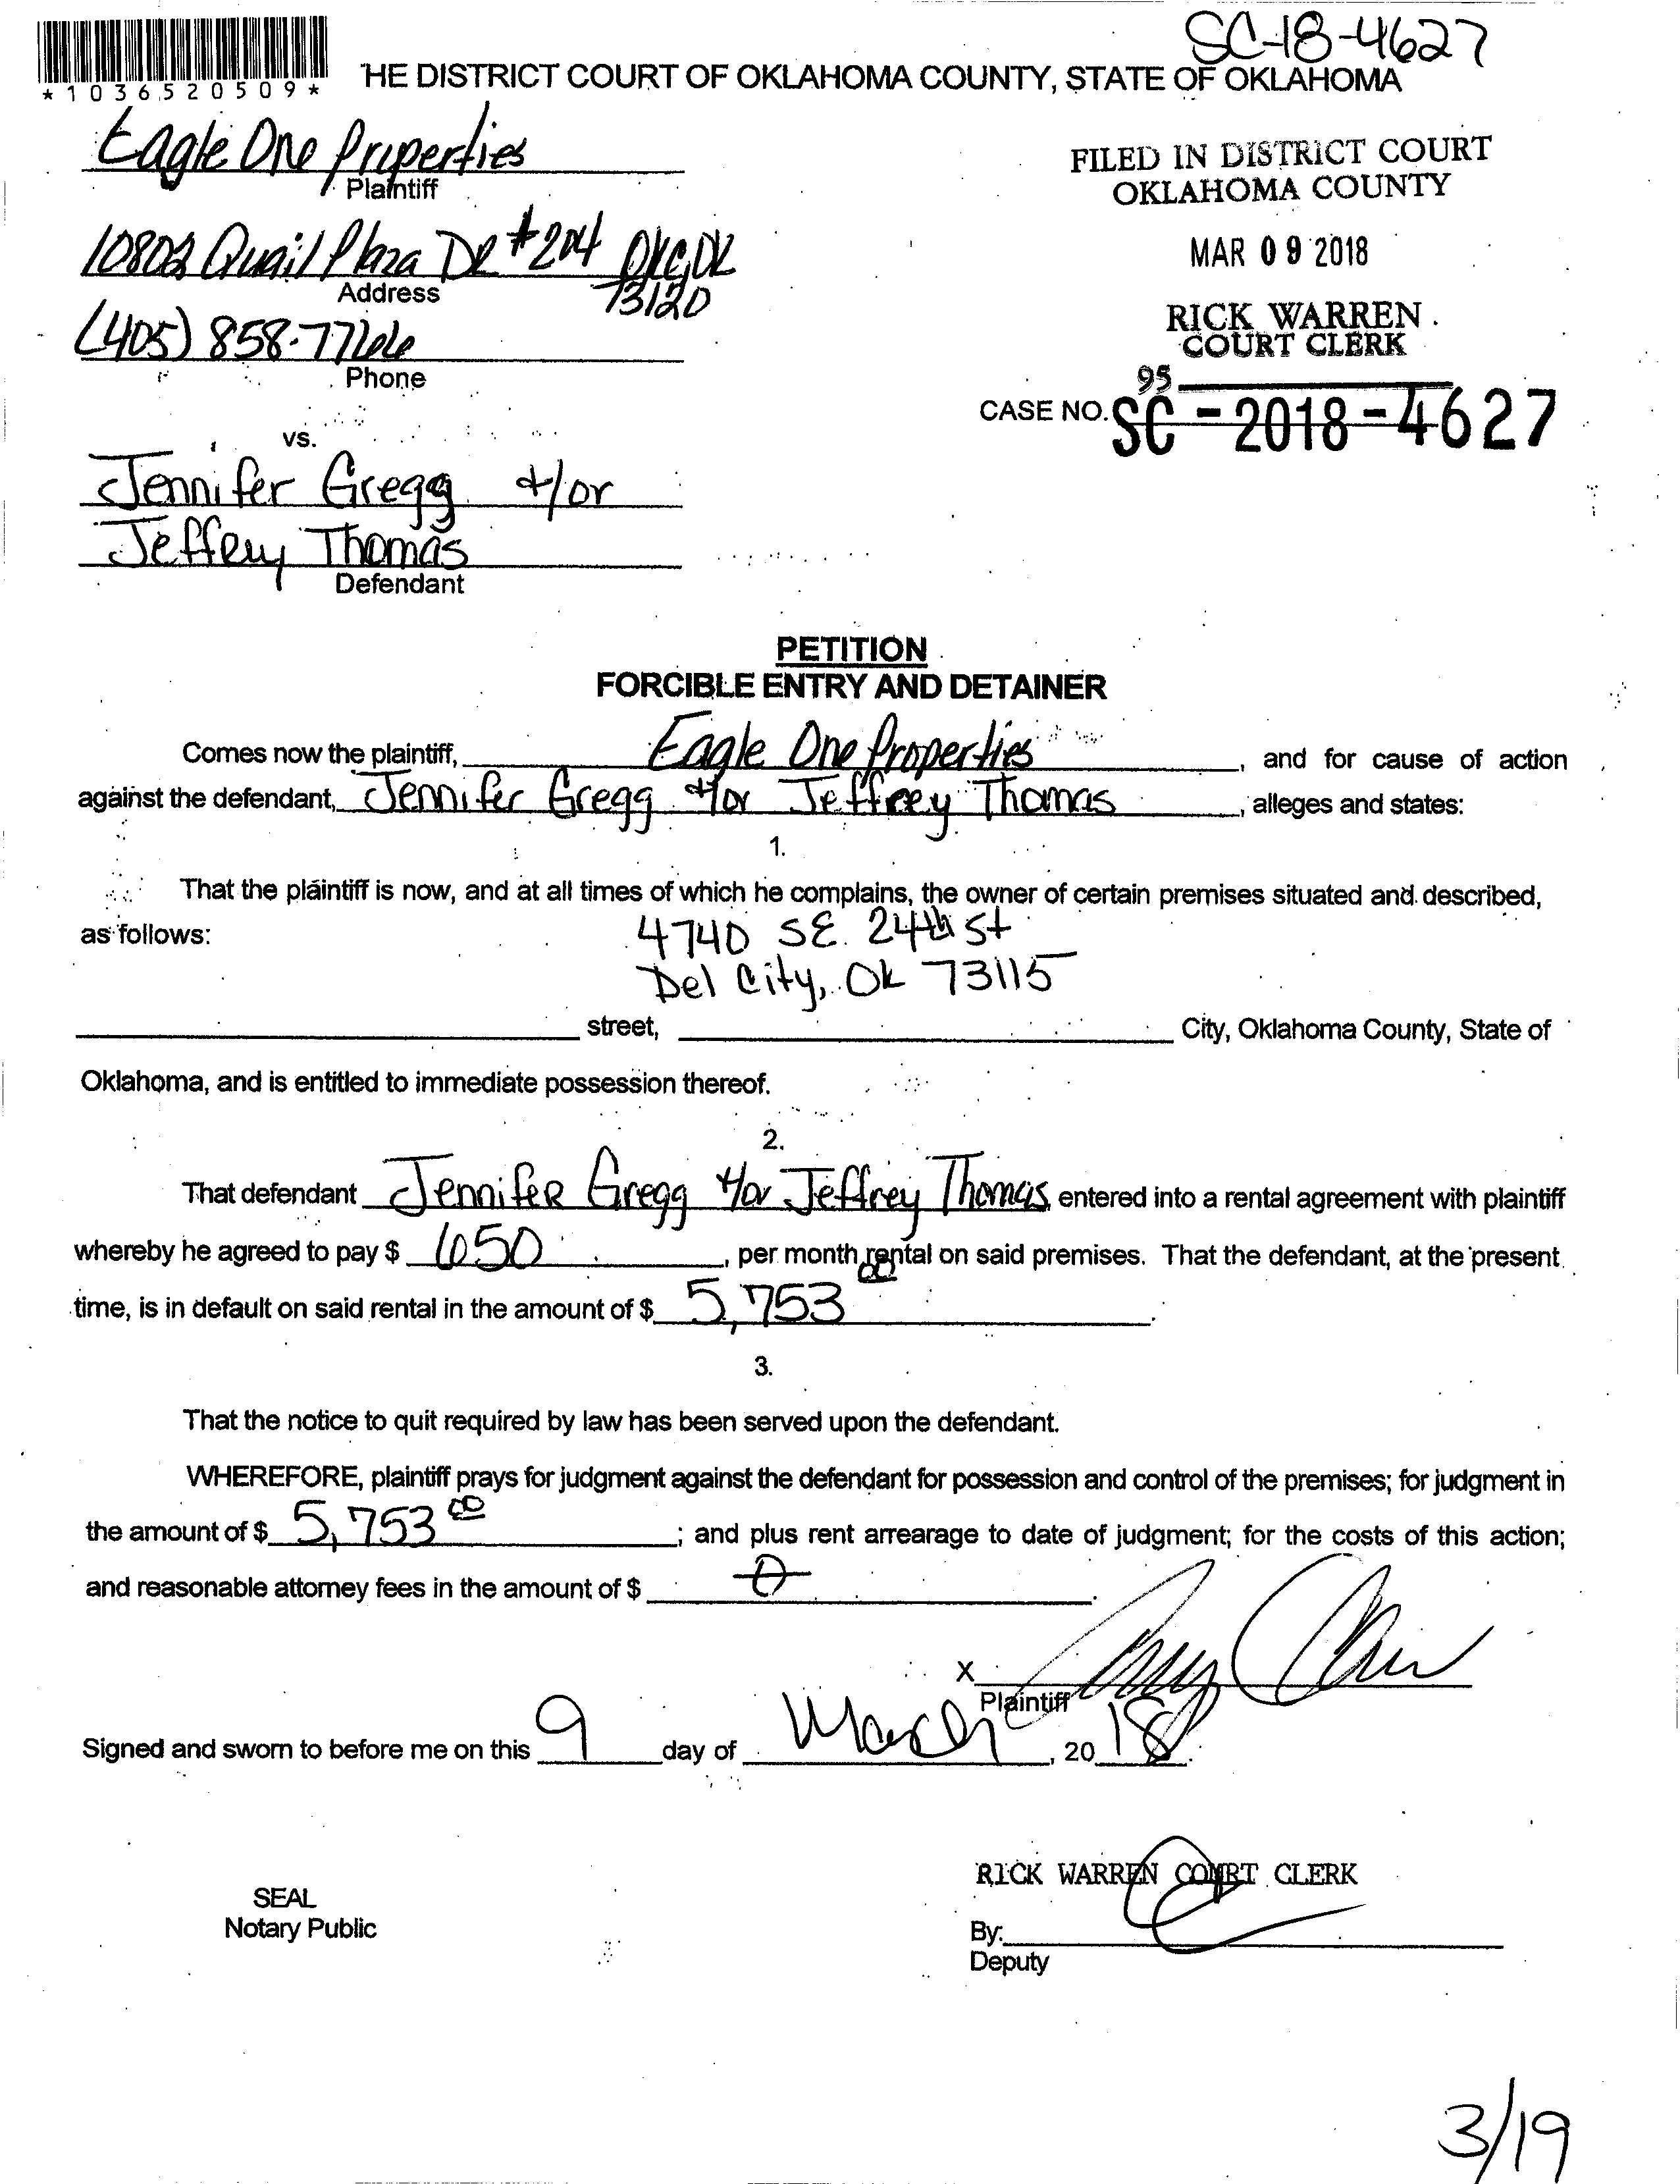 SC-18-4627
*1036520509*
HE DISTRICT COURT OF OKLAHOMA COUNTY, STATE OF OKLAHOMA
Eagle One Properties
Plaintiff
FILED IN DISTRICT COURT
OKLAHOMA COUNTY
MAR 09 2018
RICK WARREN
COURT CLERK
95
10802 Quail Plaza DR #204 OKC, OK
73120
Address
(405) 858-7766
Phone
CASE NO. SC-2018-4627
vs.
Jennifer Gregg +/or
Jeffery Thomas
Defendant
PETITION
FORCIBLE ENTRY AND DETAINER
Comes now the plaintiff, Eagle One Properties, and for cause of action
against the defendant, Jennifer Gregg +/or Jeffrey Thomas, alleges and states:
1.
That the plaintiff is now, and at all times of which he complains, the owner of certain premises situated and described,
as follows:
4740 SE. 24th St
Del City, Ok 73115
street, City, Oklahoma County, State of
Oklahoma, and is entitled to immediate possession thereof.
2.
That defendant Jennifer Gregg +/or Jeffrey Thomas, entered into a rental agreement with plaintiff
whereby he agreed to pay $ 650, per month rental on said premises. That the defendant, at the present
time, is in default on said rental in the amount of $ 5,753 00.
3.
That the notice to quit required by law has been served upon the defendant.
WHEREFORE, plaintiff prays for judgment against the defendant for possession and control of the premises; for judgment in
the amount of $ 5,753 00; and plus rent arrearage to date of judgment; for the costs of this action;
and reasonable attorney fees in the amount of $ 0.
X
Plaintiff
Signed and sworn to before me on this 9 day of March, 20 18.
RICK WARREN COURT CLERK
SEAL
Notary Public
By:
Deputy
3/19